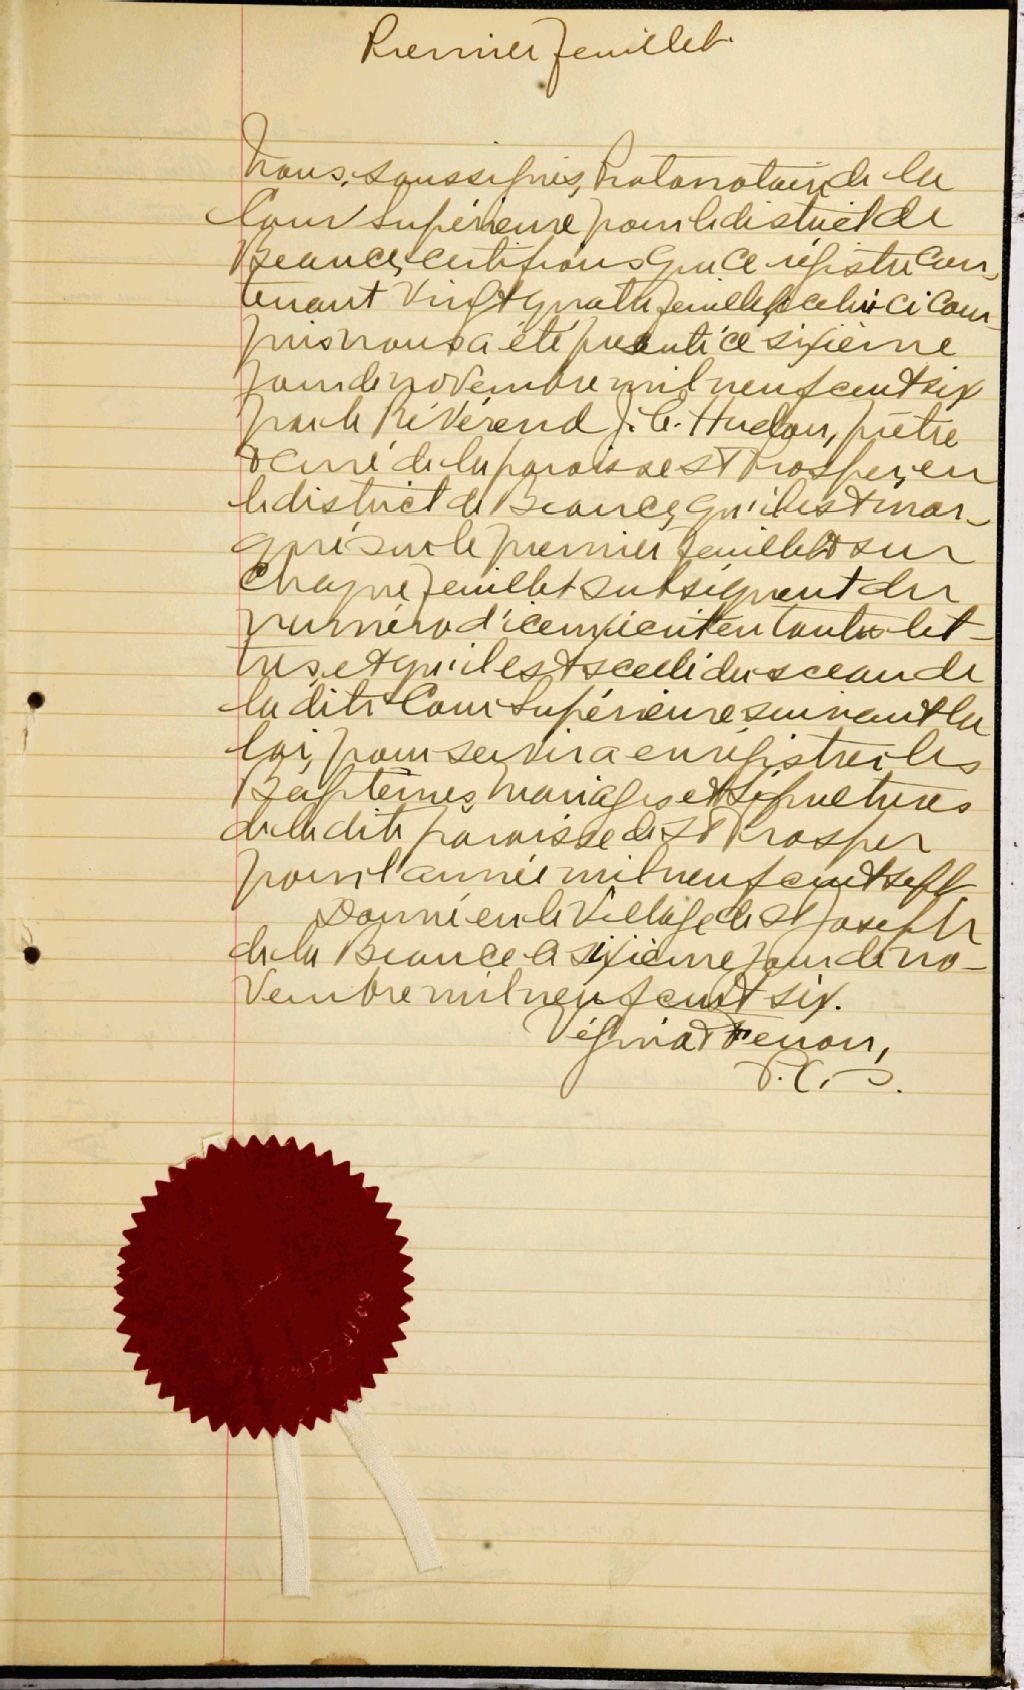 Premier feuillet
Nous, soussignés, Protonotaire de la
Cour Supérieure pour le district de
Beauce, certifions que ce régistre con-
tenant vingt quatre feuillets celui ci com-
pris nous a été présenté ce sixième
jour de novembre mil neuf cent six
par le Révérend J. E. Hudon, prêtre
& curé de la paroisse St Prosper, en
le district de Beauce, qu'il est mar-
qué sur le premier feuillet & sur
chaque feuillet subséquent du
numéro d'iceux écrit en toutes let-
tres, et qu'il est scellé du sceau de
la dite Cour Supérieure suivant la
loi, pour servir a enrégistrer les
Baptêmes Mariages et Sépultures
de la dite paroisse de St Prosper
pour l'année mil neuf cent sept
Donné en le Village de St Joseph
de la Beauce ce sixième jour de no-
vembre mil neuf cent six.
Vézina &
P.C.S.